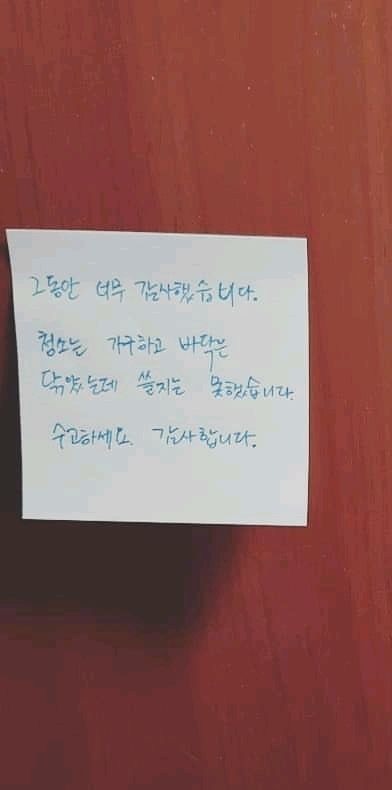 그동안 너무 감사했습니다.
청소는 가구하고 바닥은
닦았는데 쓸지는 못했습니다.
수고하세요. 감사합니다.